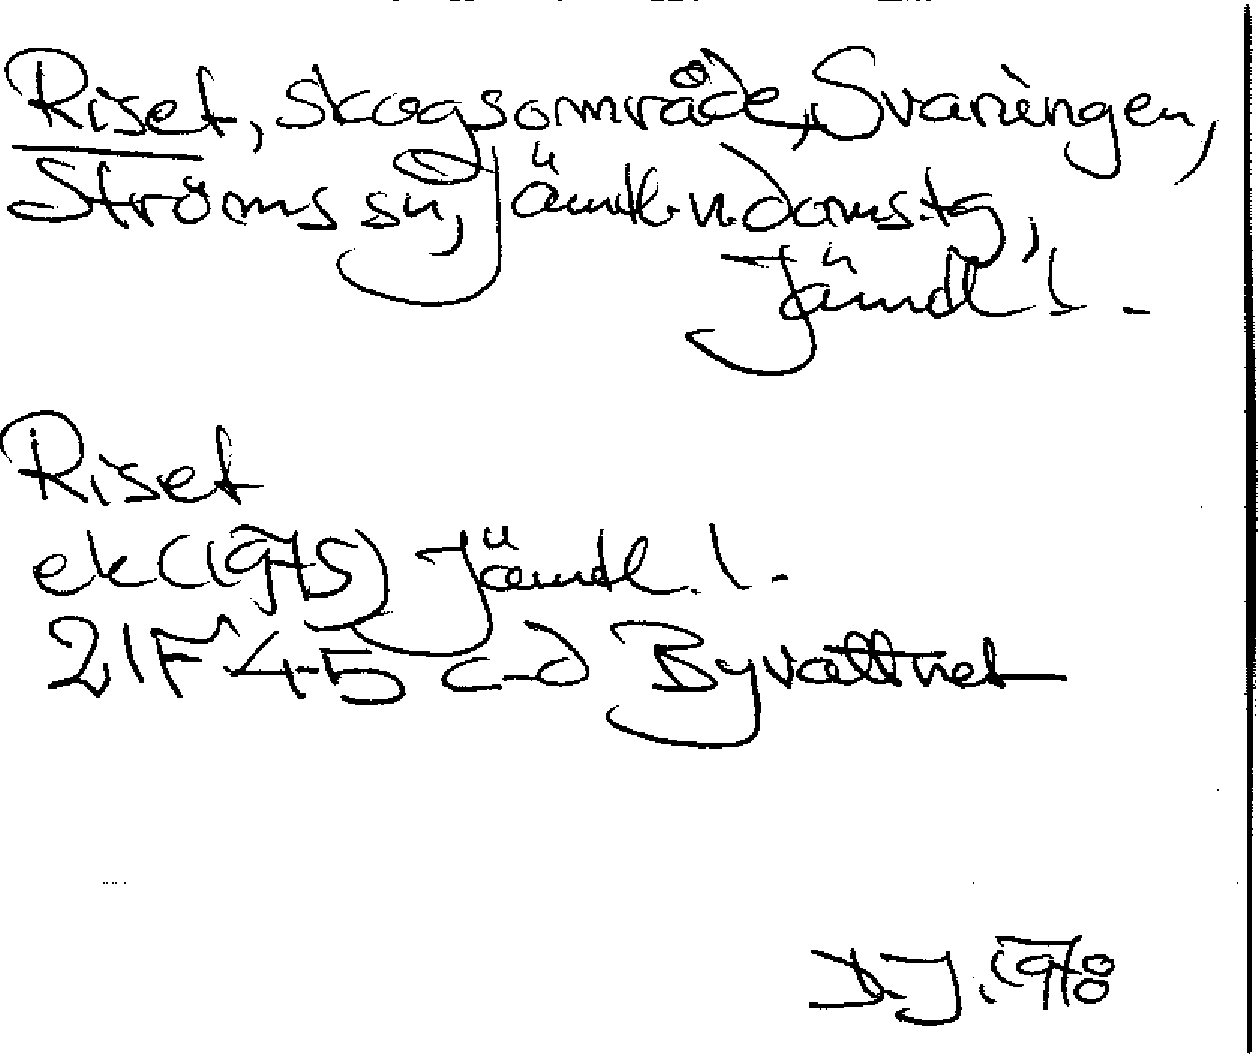 Riset, skogsområde, Svaningen,
Ströms sn, Jämtl. n. domstg,
Jämtl. l. -
Riset
ek (1975) Jämtl. l. -
21F 4-5 c-d Byvattnet
D.J. 1978